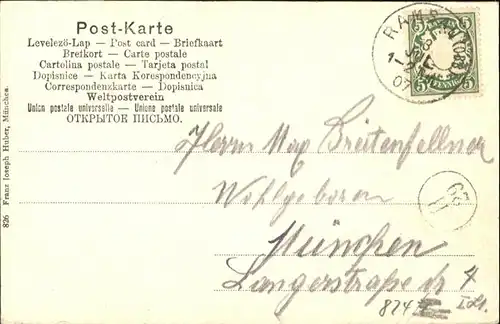 Post-Karte
Levelezö-Lap — Post card — Briefkaart
Brefkort — Carte postale
Cartolina postale — Tarjeta postal
Dopisnice — Karta Korespondencyjna
Correspondenzkarte — Dopisnica
Weltpostverein
Union postale universelle — Unione postale universale
ОТКРЫТОЕ ПИСЬМО.
5 5
PFENNIG
1-2
07
Herrn Max Breitenfellner
Wohlgeboren
München
Langerstraße Nr 4
I. Lt.
824
826 Franz Joseph Huber, München.